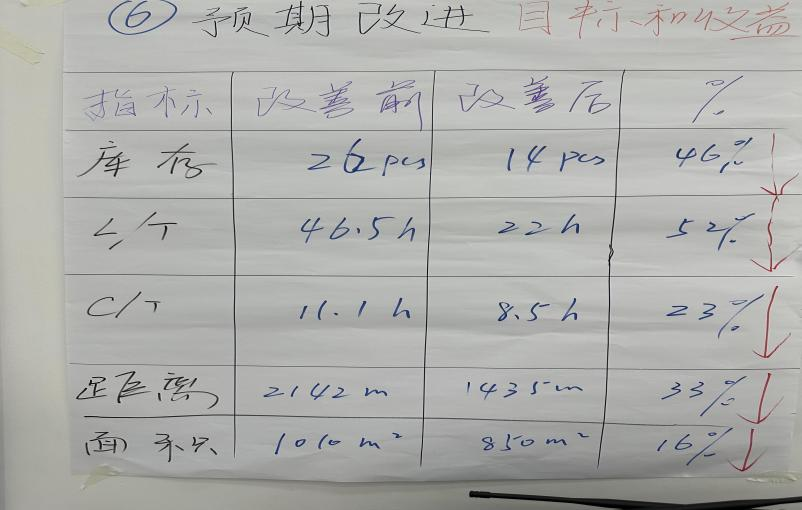 ⑥ 预期改进 目标和收益
指标 改善前 改善后 %
库存 26pcs 14pcs 46% ↓
L/T 46.5h 22h 52% ↓
C/T 11.1h 8.5h 23% ↓
距离 2142m 1435m 33% ↓
面积 1010m² 850m² 16% ↓